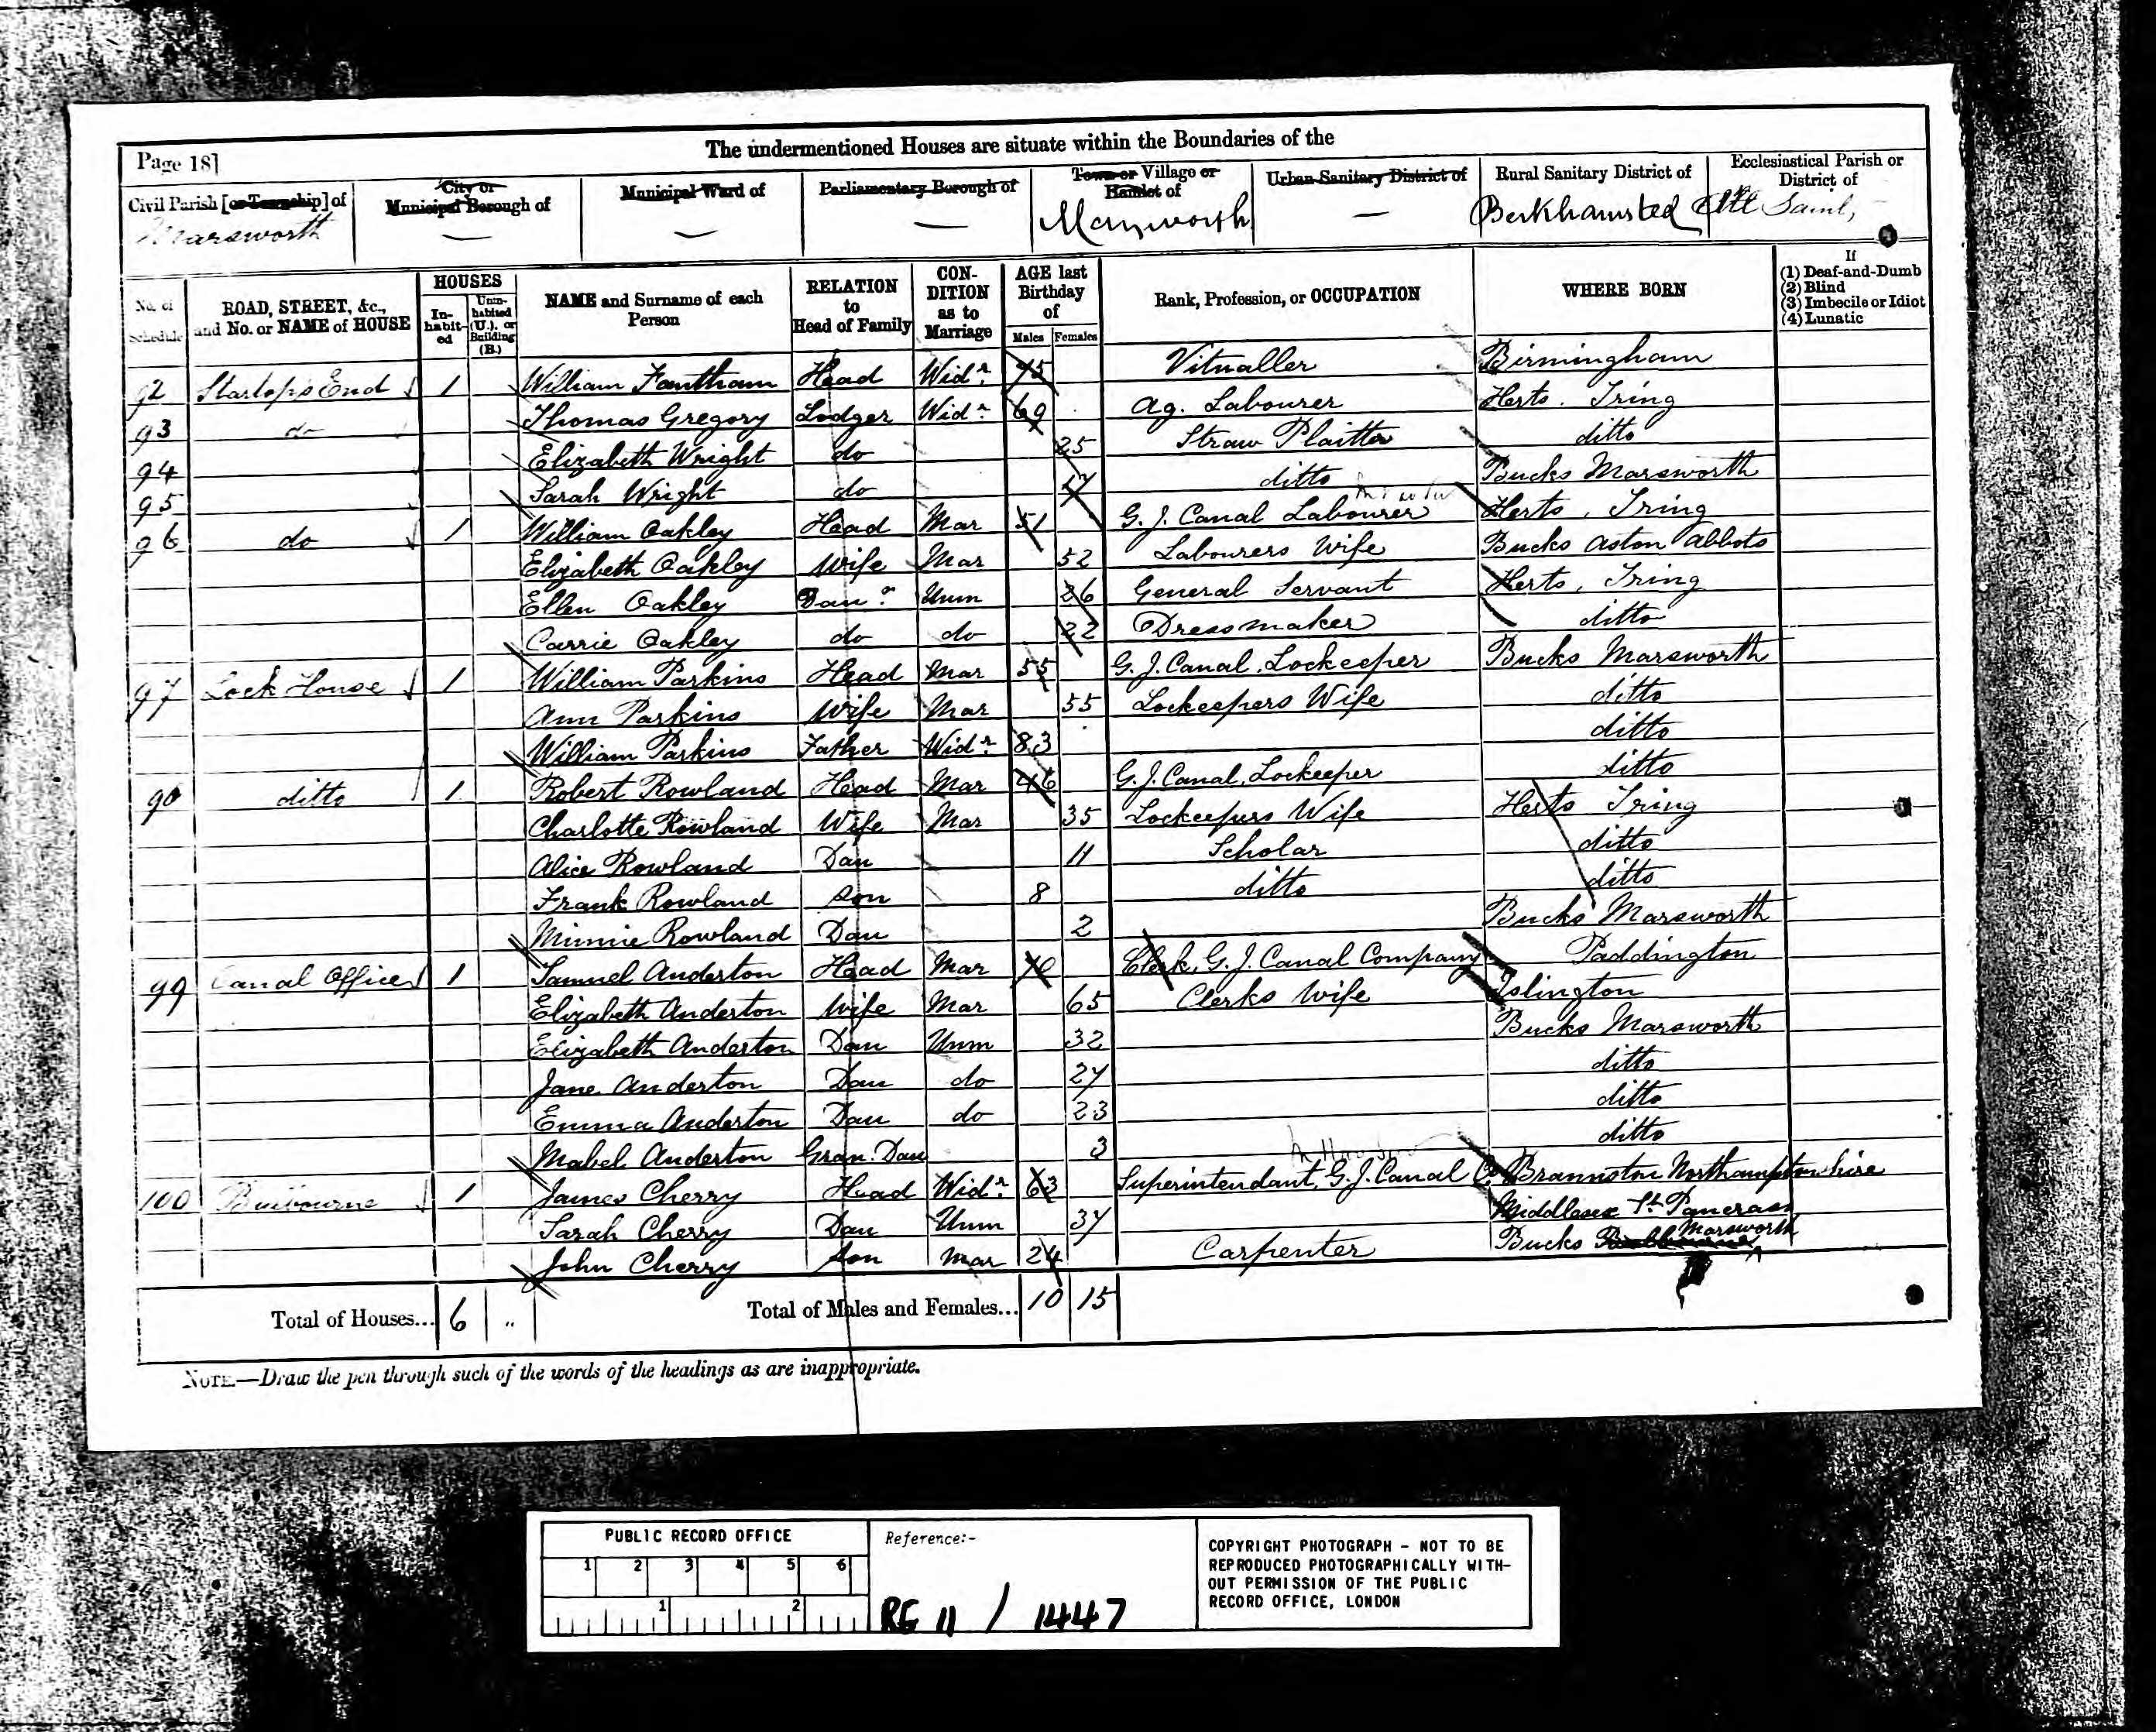 Page 18]
The undermentioned Houses are situate within the Boundaries of the
Civil Parish [or Township] of
Marsworth
City or Municipal Borough of
—
Municipal Ward of
—
Parliamentary Borough of
—
Town or Village or Hamlet of
Marsworth
Urban Sanitary District of
—
Rural Sanitary District of
Berkhamsted
Ecclesiastical Parish or District of
All Saints
No. of Schedule
ROAD, STREET, &c., and No. or NAME of HOUSE
HOUSES
In-habit-ed
Unin-habited (U.), or Building (B.)
NAME and Surname of each Person
RELATION to Head of Family
CON-DITION as to Marriage
AGE last Birthday of
Males Females
Rank, Profession, or OCCUPATION
WHERE BORN
If
(1) Deaf-and-Dumb
(2) Blind
(3) Imbecile or Idiot
(4) Lunatic
92 Startops End 1 William Fantham Head Widr. 75 Vitualler Birmingham
93 do Thomas Gregory Lodger Widr. 69 Ag. Labourer Herts. Tring
94 Elizabeth Wright do 25 Straw Plaitter ditto
95 Sarah Wright do 17 ditto Bucks Marsworth
96 do 1 William Oakley Head Mar 51 G. J. Canal Labourer Herts, Tring
Elizabeth Oakley Wife Mar 52 Labourers Wife Bucks Aston Abbots
Ellen Oakley Daur. Unm 26 General Servant Herts, Tring
Carrie Oakley do do 22 Dressmaker ditto
97 Lock House 1 William Parkins Head Mar 55 G. J. Canal, Lockeeper Bucks Marsworth
Ann Parkins Wife Mar 55 Lockeepers Wife ditto
William Parkins Father Widr. 83 ditto
98 ditto 1 Robert Rowland Head Mar 46 G. J. Canal, Lockeeper ditto
Charlotte Rowland Wife Mar 35 Lockeepers Wife Herts Tring
Alice Rowland Dau 11 Scholar ditto
Frank Rowland Son 8 ditto ditto
Minnie Rowland Dau 2 Bucks Marsworth
99 Canal Office 1 Samuel Anderton Head Mar 70 Clerk, G. J. Canal Company Paddington
Elizabeth Anderton Wife Mar 65 Clerks Wife Islington
Elizabeth Anderton Dau Unm 32 Bucks Marsworth
Jane Anderton Dau do 27 ditto
Emma Anderton Dau do 23 ditto
Mabel Anderton Gran. Dau 3 ditto
100 Bulbourne 1 James Cherry Head Widr. 63 Superintendant, G. J. Canal Co. Brannston Northamptonshire
Sarah Cherry Dau Unm 37 Middlesex St. Pancras
John Cherry Son Mar 24 Carpenter Bucks Marsworth
Total of Houses... 6 „ Total of Males and Females... 10 15
NOTE.—Draw the pen through such of the words of the headings as are inappropriate.
PUBLIC RECORD OFFICE
1 2 3 4 5 6
1 2
Reference:-
RG 11 / 1447
COPYRIGHT PHOTOGRAPH - NOT TO BE
REPRODUCED PHOTOGRAPHICALLY WITH-
OUT PERMISSION OF THE PUBLIC
RECORD OFFICE, LONDON